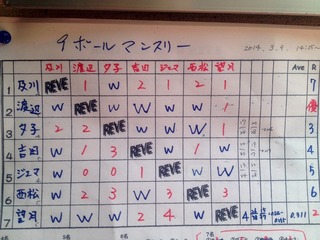 9ボールマンスリー
2014.3.9. 14:15~
及川 渡辺 夕子 吉田 ジェマ 西松 望月 Ave R
1 及川 REVE 1 W 2 1 1 1 7
2 渡辺 W REVE W W W W 1 優
3 夕子 2 2 REVE W W W 1 3
4 吉田 W 1 3 REVE W 1 W 4
5 ジェマ W 0 0 1 REVE W W 5
6 西松 W 2 3 W 3 REVE 3 6
7 望月 W W W 2 4 W REVE 0.811 2